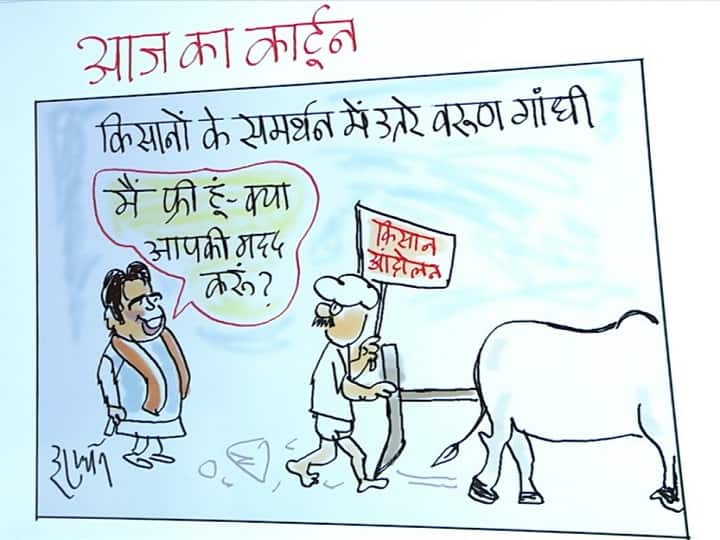 आज का कार्टून
किसानों के समर्थन में उतरे वरुण गांधी
मैं फ्री हूं-क्या
आपकी मदद
करूं?
किसान
आंदोलन